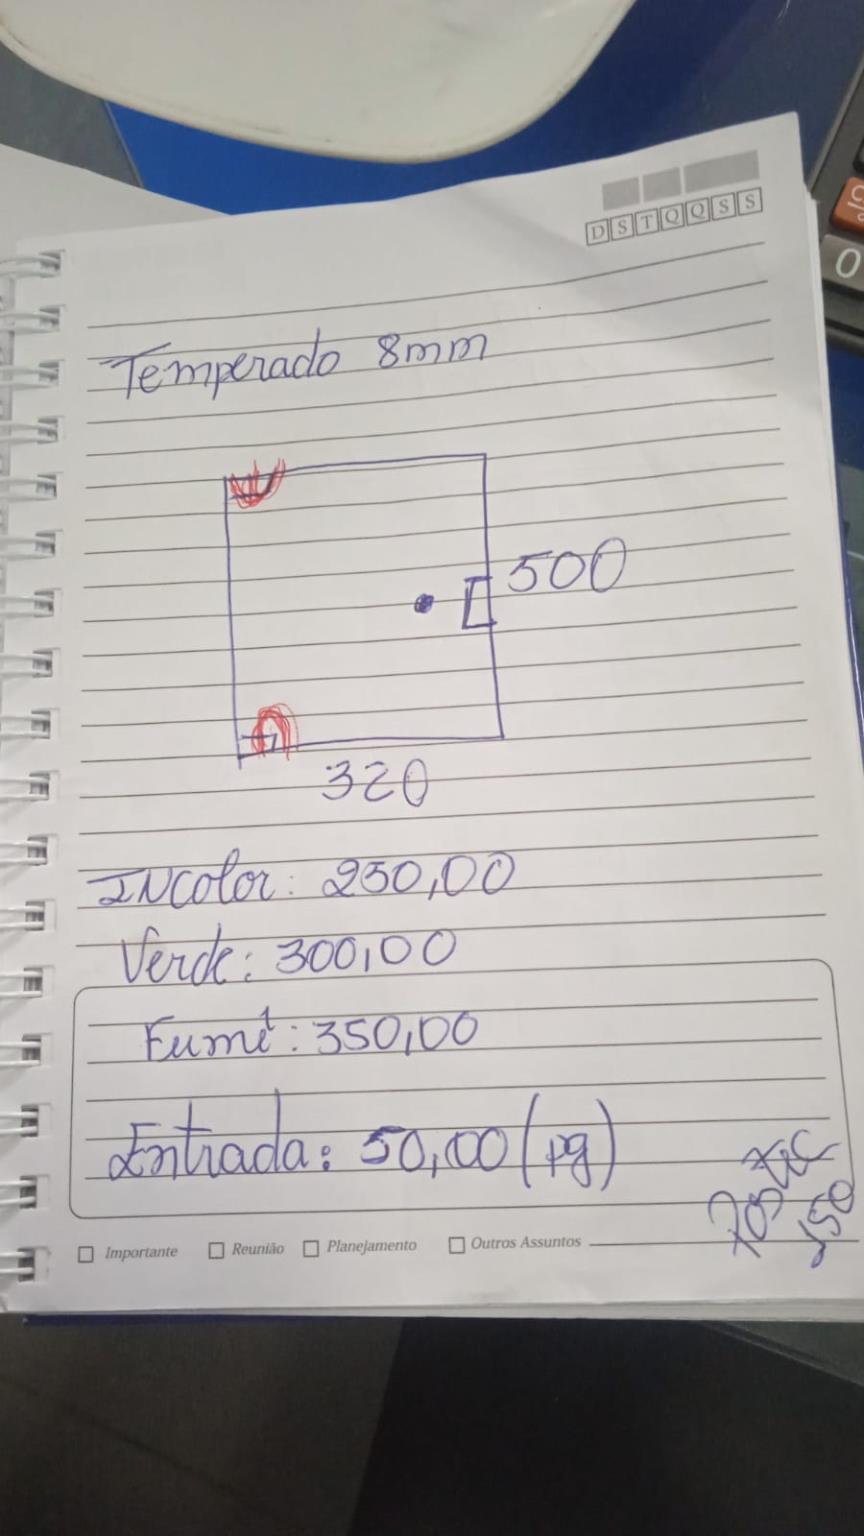 D S T Q Q S S
0
Temperado 8mm
500
320
INcolor: 250,00
Verde: 300,00
Fumê: 350,00
Entrada: 50,00 (pg)
150
Importante Reunião Planejamento Outros Assuntos